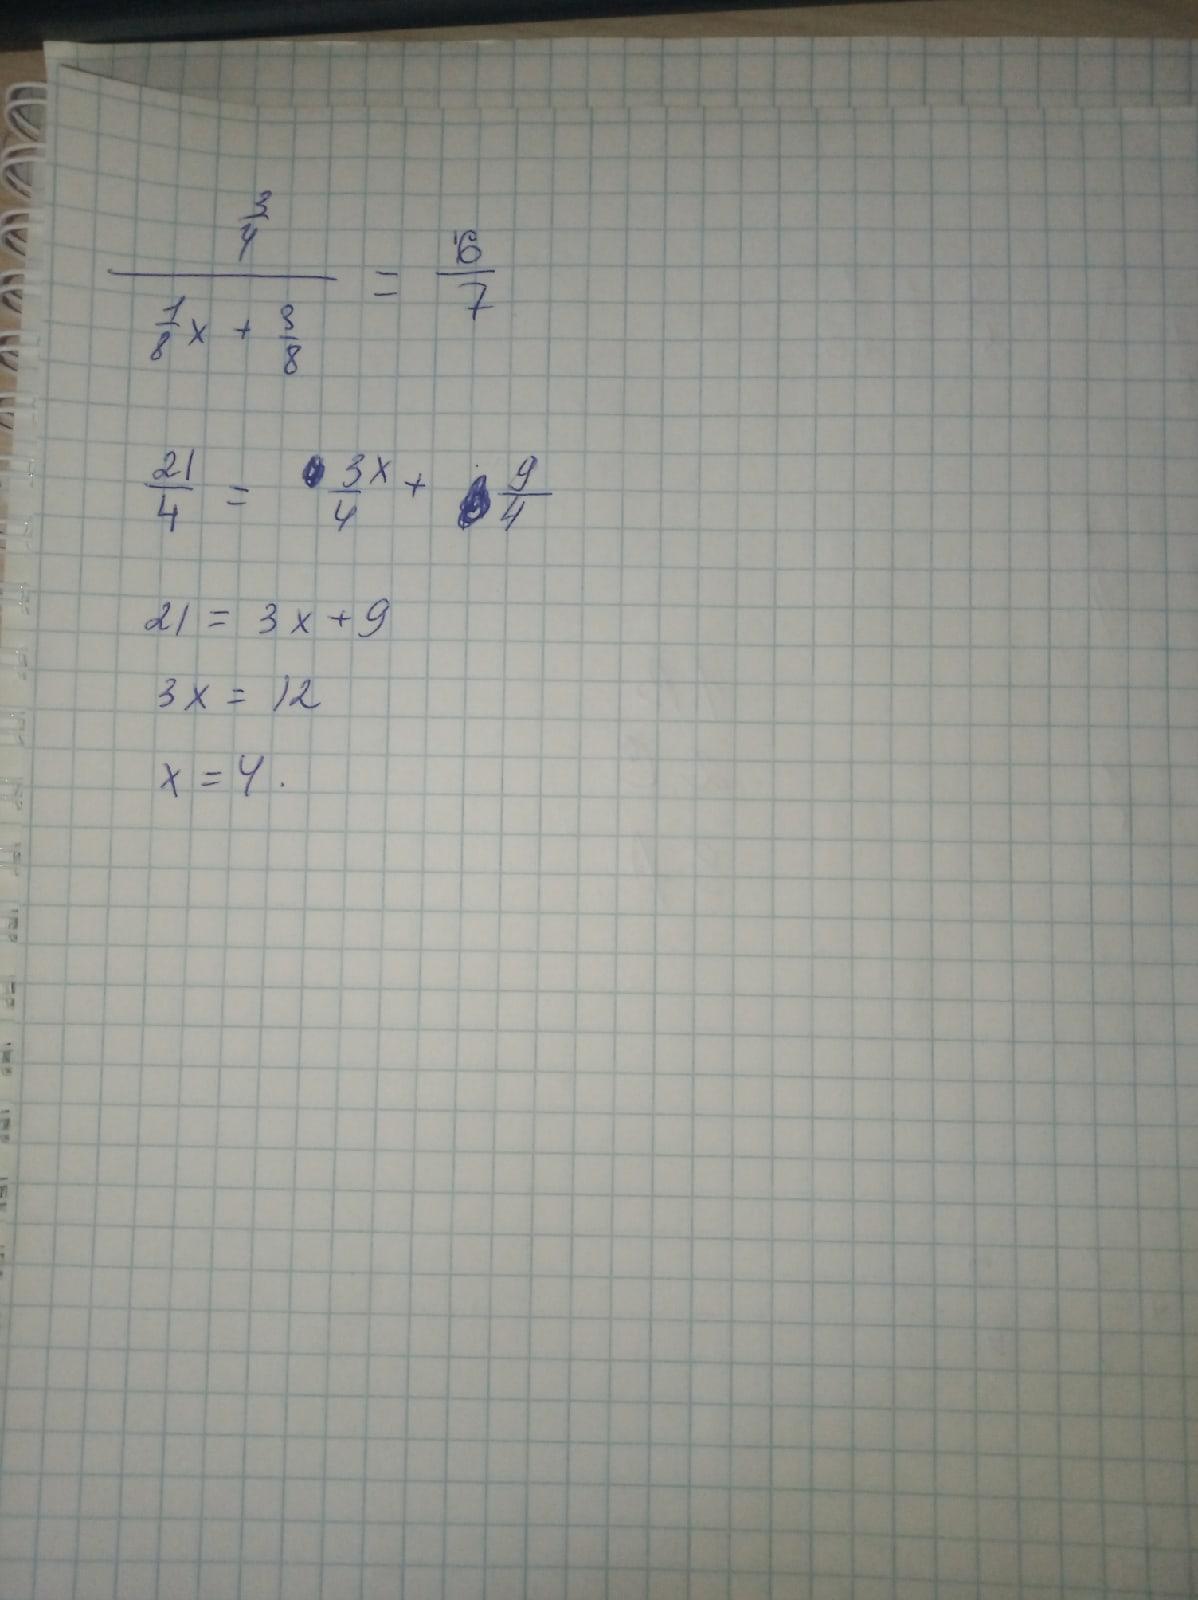 3/4 / (1/8 x + 3/8) = 6/7
21/4 = 3x/4 + 9/4
21 = 3x + 9
3x = 12
x = 4.